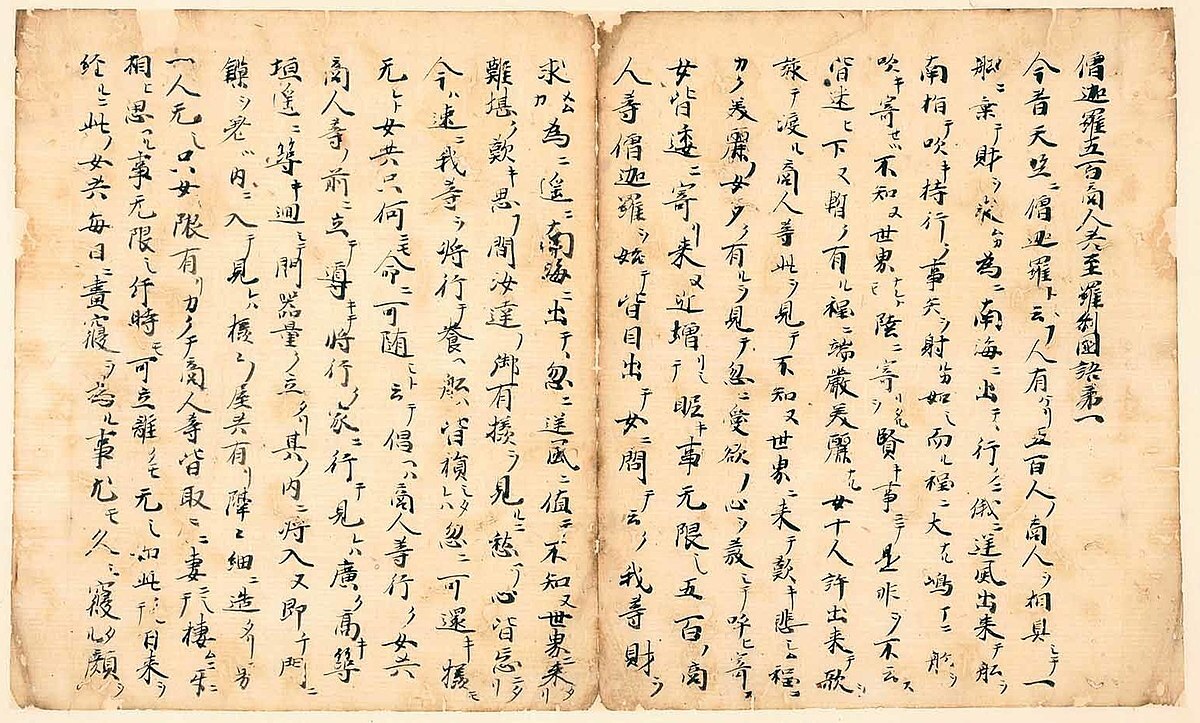 僧迦羅五百商人共至羅刹国語第一
今昔天竺ニ僧迦羅ト云フ人有ケリ五百人ノ商人ヲ相具シテ一
船ニ乗テ財ヲ求カ為ニ南海ニ出テ行クニ俄ニ逆風出来テ船ヲ
南指テ吹キ持行ク事矢ヲ射カ如シ而ル程ニ大ナル嶋ニ船ヲ
吹キ寄セツ不知ヌ世界ナレトモ陸ニ寄タルヲ賢キ事ニシテ是非ヲ不云ス
皆迷ヒ下ヌ暫ク有ル程ニ端厳美麗ナル女十人許出来テ歌ヲ
詠テ渡ル商人等此ヲ見テ不知ヌ世界ニ来テ歎キ悲ム程ニ
カク美麗ノ女多ク有ルヲ見テ忽ニ愛欲ノ心ヲ發シテ呼ヒ寄ス
女皆逶ニ寄リ来ヌ近増リシテ眤キ事元限シ五百ノ商
人等僧迦羅ヲ始テ皆目出テ女ニ問テ云ク我等財ヲ
求ムカ為ニ遥ニ南海ニ出テ忽ニ逆風ニ値テ不知ヌ世界ニ来タリ
難堪ク歎キ思フ間汝達ノ御有様ヲ見ルニ愁ノ心皆忘ニタリ
今ハ速ニ我等ヲ将行テ養ヘ船ハ皆損シタレハ忽ニ可還キ様モ
无シト女共只何ニモ命ニ可随シト云テ倡ヘハ商人等行ク女共
商人等ノ前ニ立テ導キテ将行ク家ニ行テ見レハ廣ク高キ築
垣遥ニ築キ廻シテ門器量ク立タリ其ノ内ニ将入ヌ即チ門ニ
鏁ヲ差ツ内ニ入テ見レハ様々ノ屋共有リ隔々ニ細ニ造タリ男
一人无シ只女ノ限有リカクテ商人等皆取々ニ妻ニシテ棲ムニ互ニ
相ヒ思ヘル事无限シ片時モ可立離クモ无シ如此クテ日来ヲ
経ルニ此ノ女共毎日ニ晝寝ヲ為ル事尤モ久シ寝タル顔ヲ